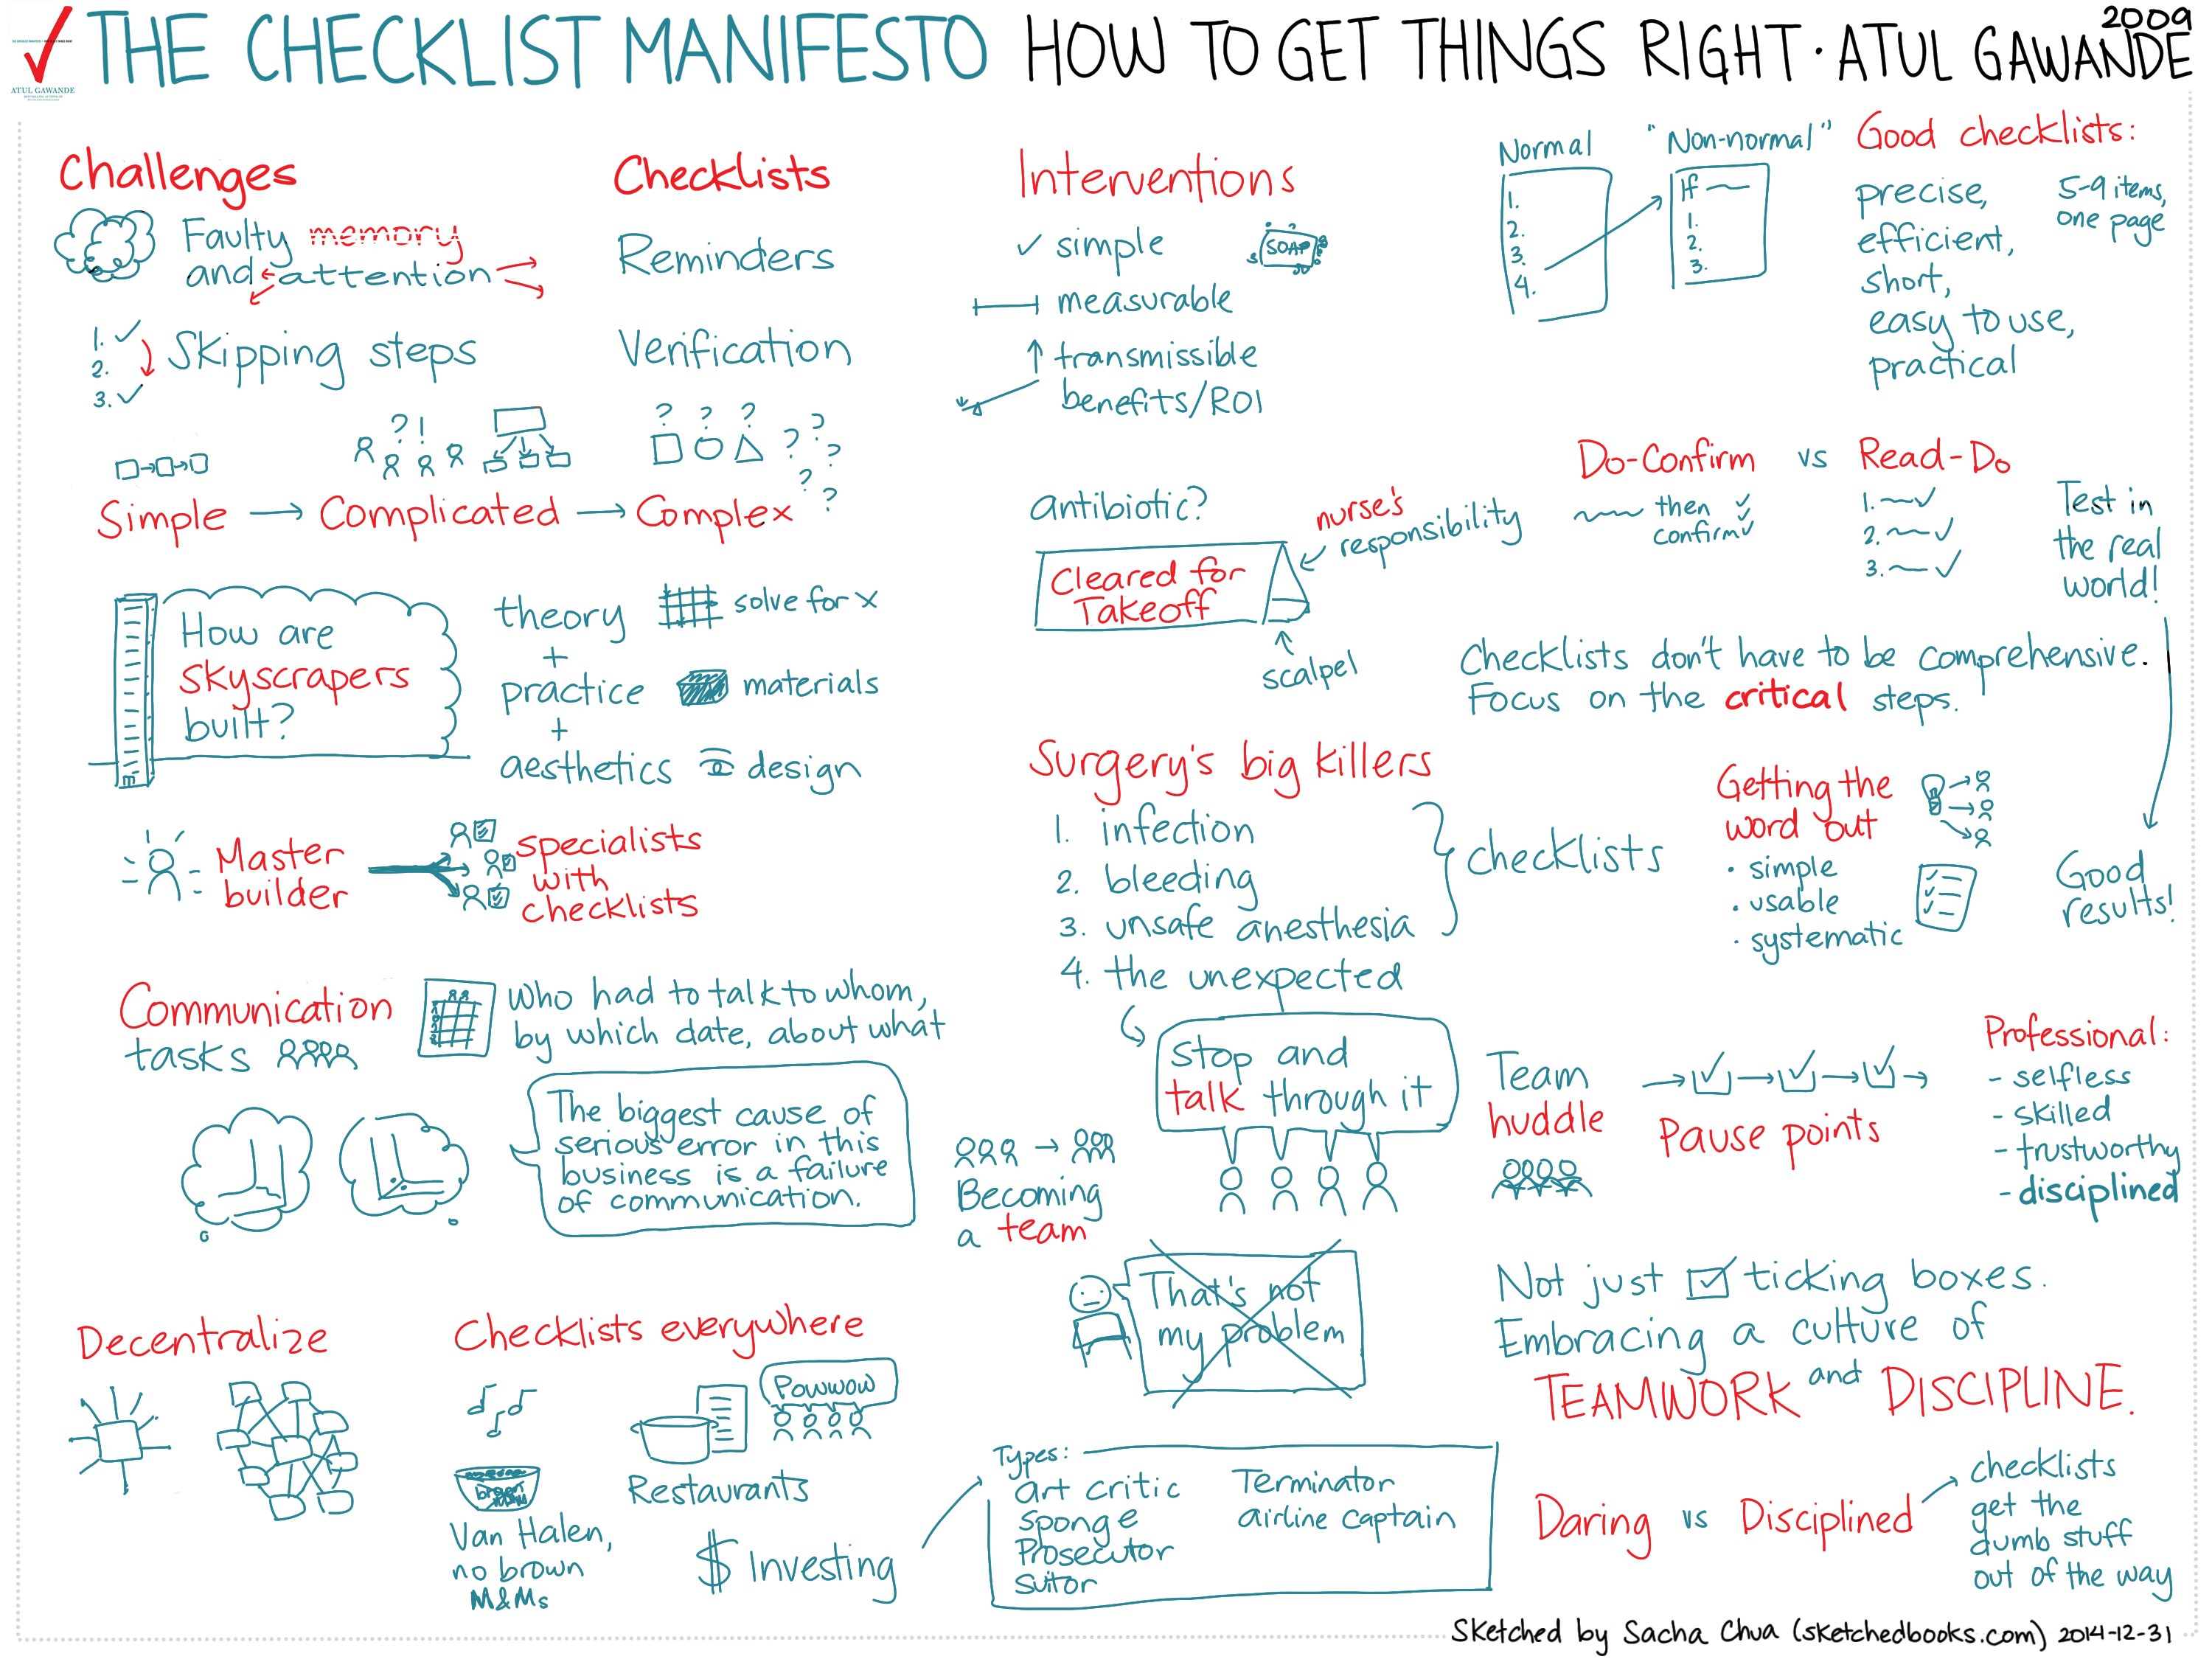 THE CHECKLIST MANIFESTO HOW TO GET THINGS RIGHT · ATUL GAWANDE
2009
ATUL GAWANDE
Challenges
Faulty memory
and attention
1.
2.
3.
Skipping steps
Checklists
Reminders
Verification
?!
? ? ? ? ? ? ? ?
Simple → Complicated → Complex
How are
skyscrapers
built?
theory
+
practice
+
aesthetics
solve for x
materials
design
Master
builder
specialists
with
checklists
Communication
tasks
who had to talk to whom,
by which date, about what
The biggest cause of
serious error in this
business is a failure
of communication.
Decentralize
Checklists everywhere
brown
Van Halen,
no brown
M&Ms
Powwow
Restaurants
$ Investing
Interventions
simple
SOAP
measurable
transmissible
benefits/ROI
antibiotic?
Cleared for
Takeoff
nurse's
responsibility
scalpel
Surgery's big killers
1. infection
2. bleeding
3. unsafe anesthesia
4. the unexpected
checklists
stop and
talk through it
Becoming
a team
That's not
my problem
Types:
art critic
sponge
Prosecutor
suitor
Terminator
airline captain
Normal
1.
2.
3.
4.
"Non-normal"
If
1.
2.
3.
Good checklists:
precise,
efficient,
short,
easy to use,
practical
5-9 items,
one page
Do-Confirm vs Read-Do
then
confirm
1.
2.
3.
Test in
the real
world!
Checklists don't have to be comprehensive.
Focus on the critical steps.
Getting the
word out
· simple
· usable
· systematic
Good
results!
Team
huddle
Pause points
Professional:
- selfless
- skilled
- trustworthy
- disciplined
Not just ticking boxes.
Embracing a culture of
TEAMWORK and DISCIPLINE.
Daring vs Disciplined
checklists
get the
dumb stuff
out of the way
Sketched by Sacha Chua (sketchedbooks.com) 2014-12-31